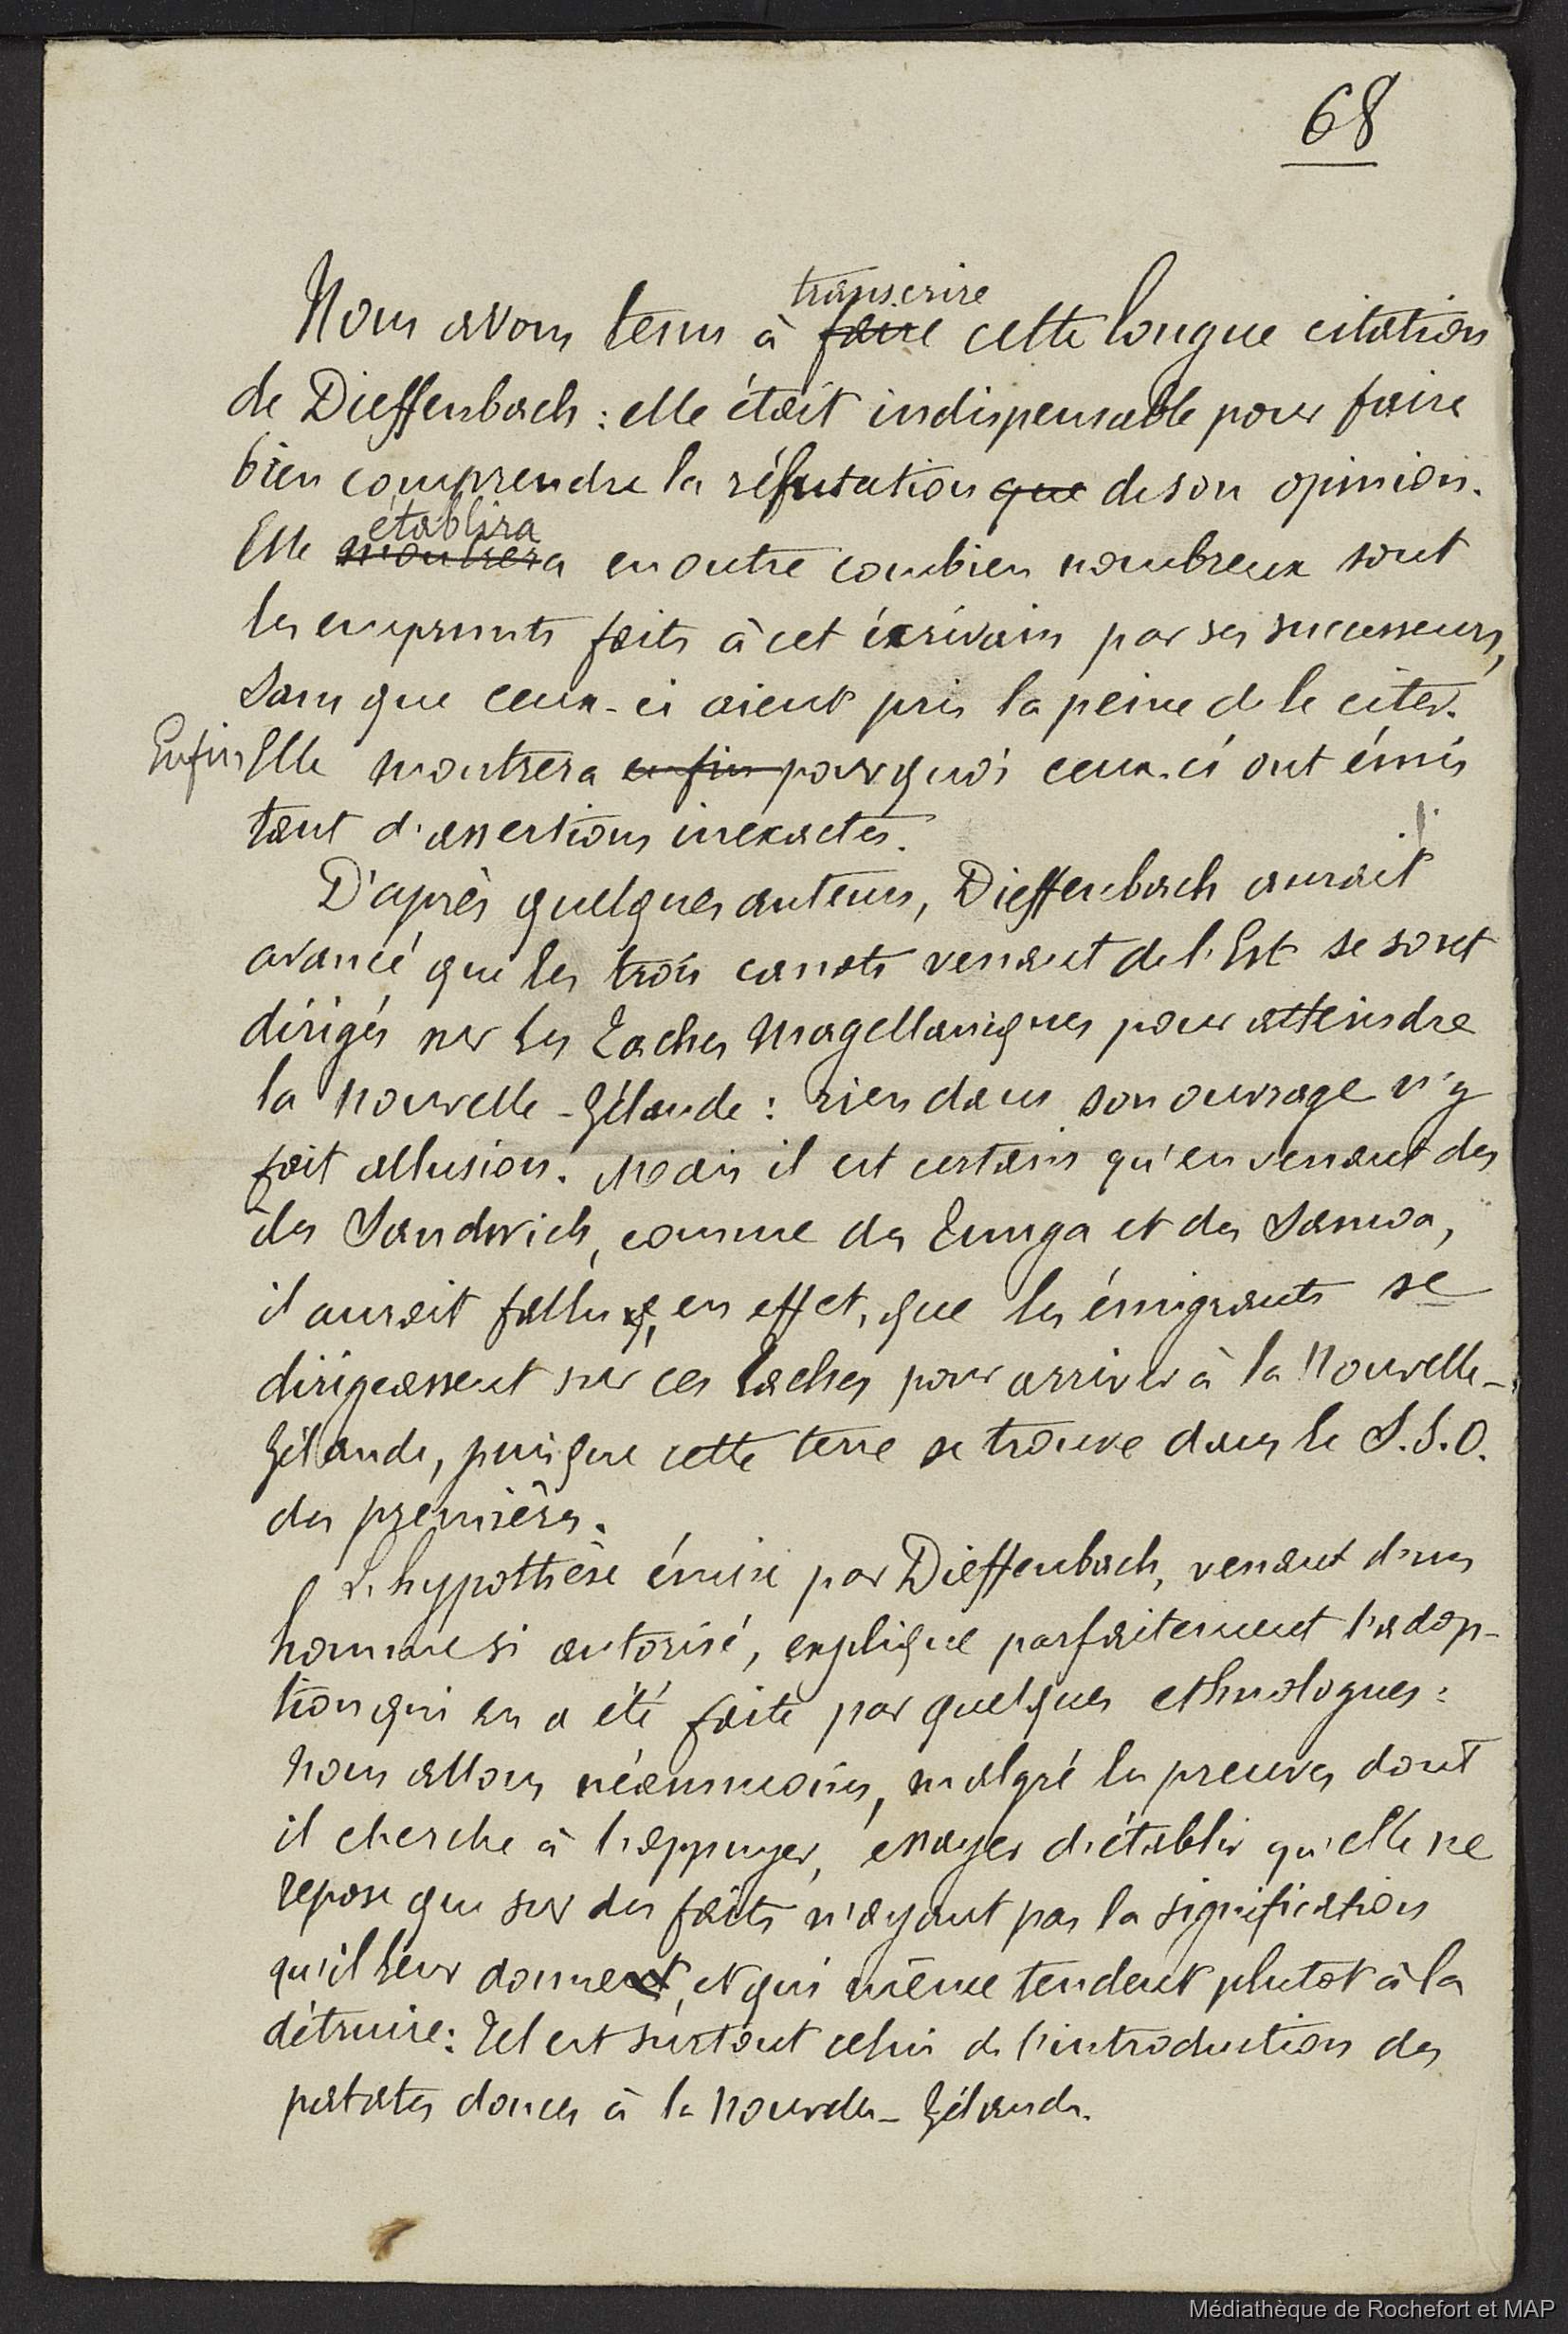 68
Nous avons tenu à ~~faire~~ transcrire cette longue citation
de Dieffenbach : elle était indispensable pour faire
bien comprendre la réfutation ~~que~~ de son opinion.
Elle ~~montrera~~ établira en outre combien nombreux sont
les emprunts faits à cet écrivain par ses successeurs,
sans que ceux-ci aient pris la peine de le citer.
Enfin Elle montrera ~~enfin~~ pourquoi ceux-ci ont émis
tant d'assertions inexactes.
D'après quelques auteurs, Dieffenbach aurait
avancé que les trois canots venant de l'Est se sont
dirigés sur les Taches Magellaniques pour atteindre
la Nouvelle-Zélande : rien dans son ouvrage n'y
fait allusion. Mais il est certain qu'en venant des
îles Sandwich, comme des Tunga et des Samoa,
il aurait fallu, en effet, que les émigrants se
dirigeassent sur ces taches pour arriver à la Nouvelle-
Zélande, puisque cette terre se trouve dans le S.S.O.
des premières.
L'hypothèse émise par Dieffenbach, venant d'un
homme si autorisé, explique parfaitement l'adop-
tion qui en a été faite par quelques ethnologues :
nous allons néanmoins, malgré les preuves dont
il cherche à l'appuyer, essayer d'établir qu'elle ne
repose que sur des faits n'ayant pas la signification
qu'il leur donne, et qui même tendent plutot à la
détruire : Tel est surtout celui de l'introduction des
patates douces à la Nouvelle-Zélande.
Médiathèque de Rochefort et MAP